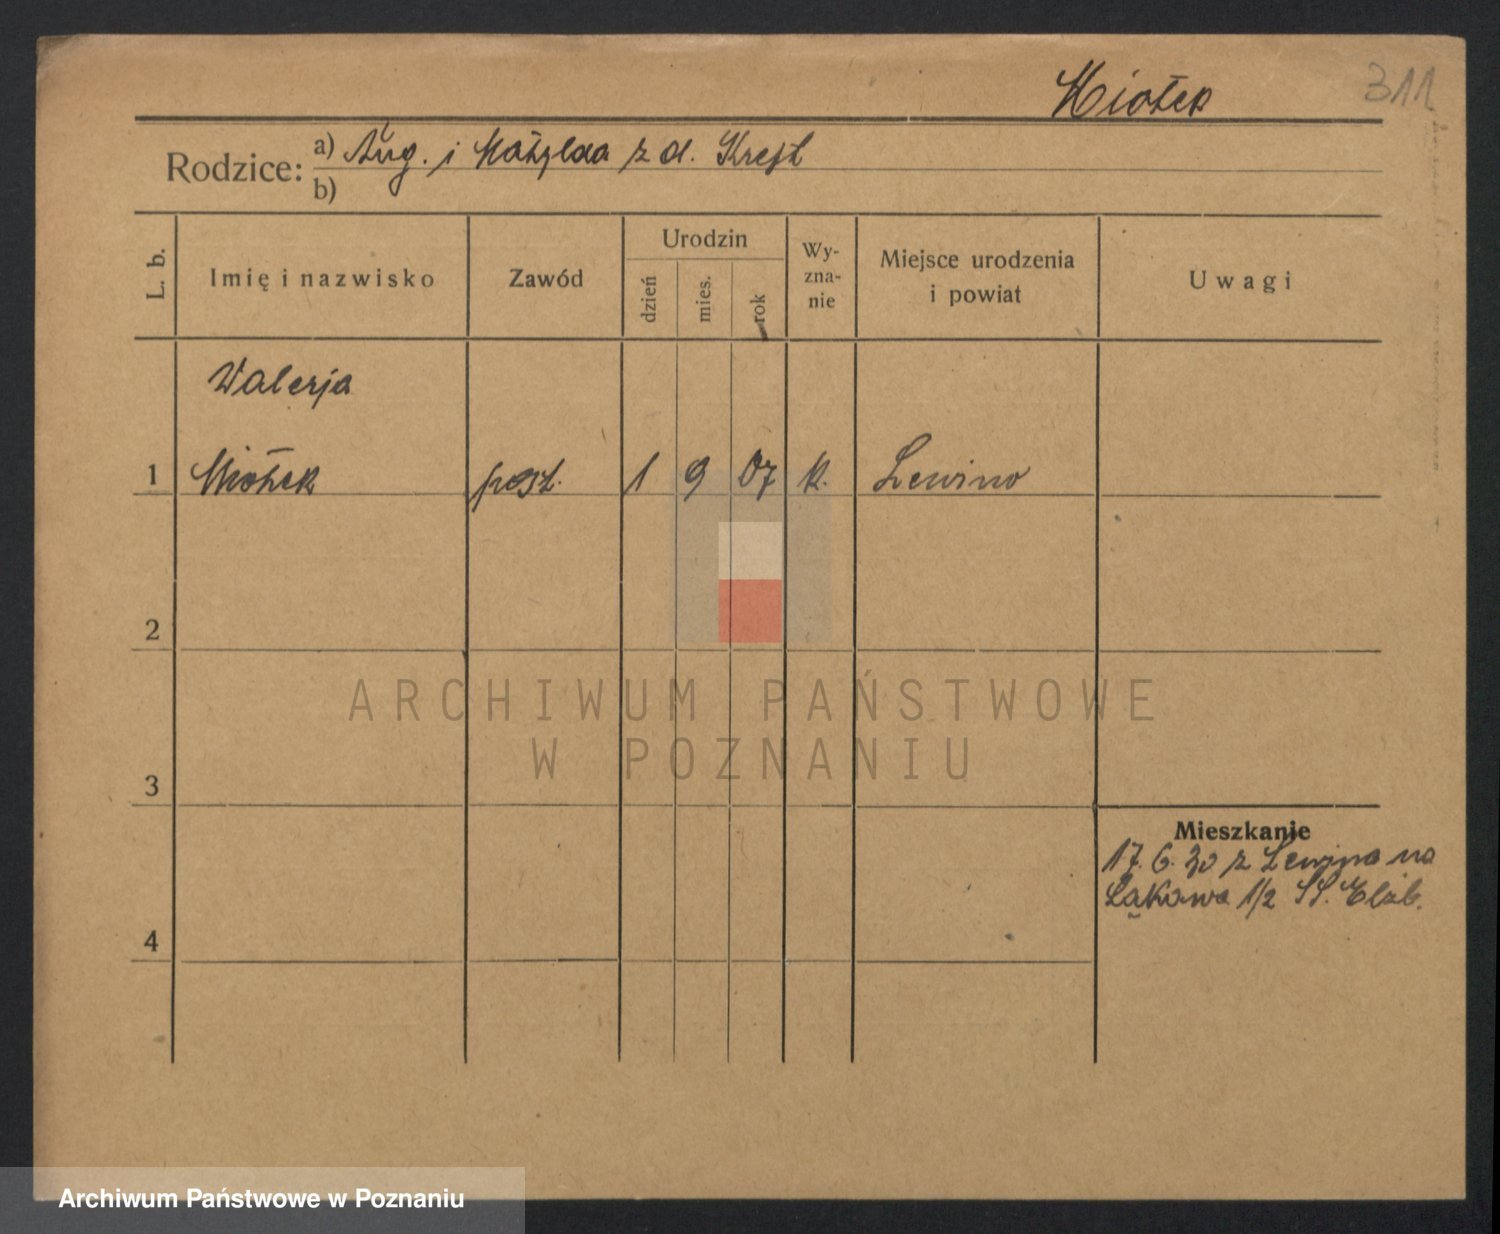 Miotek 311
Rodzice: a) Aug. i Matylda z d. Kreft
b)
L. b. Imię i nazwisko Zawód Urodzin dzień mies. rok Wy-zna-nie Miejsce urodzenia i powiat Uwagi
Walerja
1 Miotek post. 1 9 07 k. Lewino
2
3
4
Mieszkanie
17. 6. 30 z Lewina na
Łąkowa 1/2 SS. Elżb.
ARCHIWUM PAŃSTWOWE
W POZNANIU
Archiwum Państwowe w Poznaniu